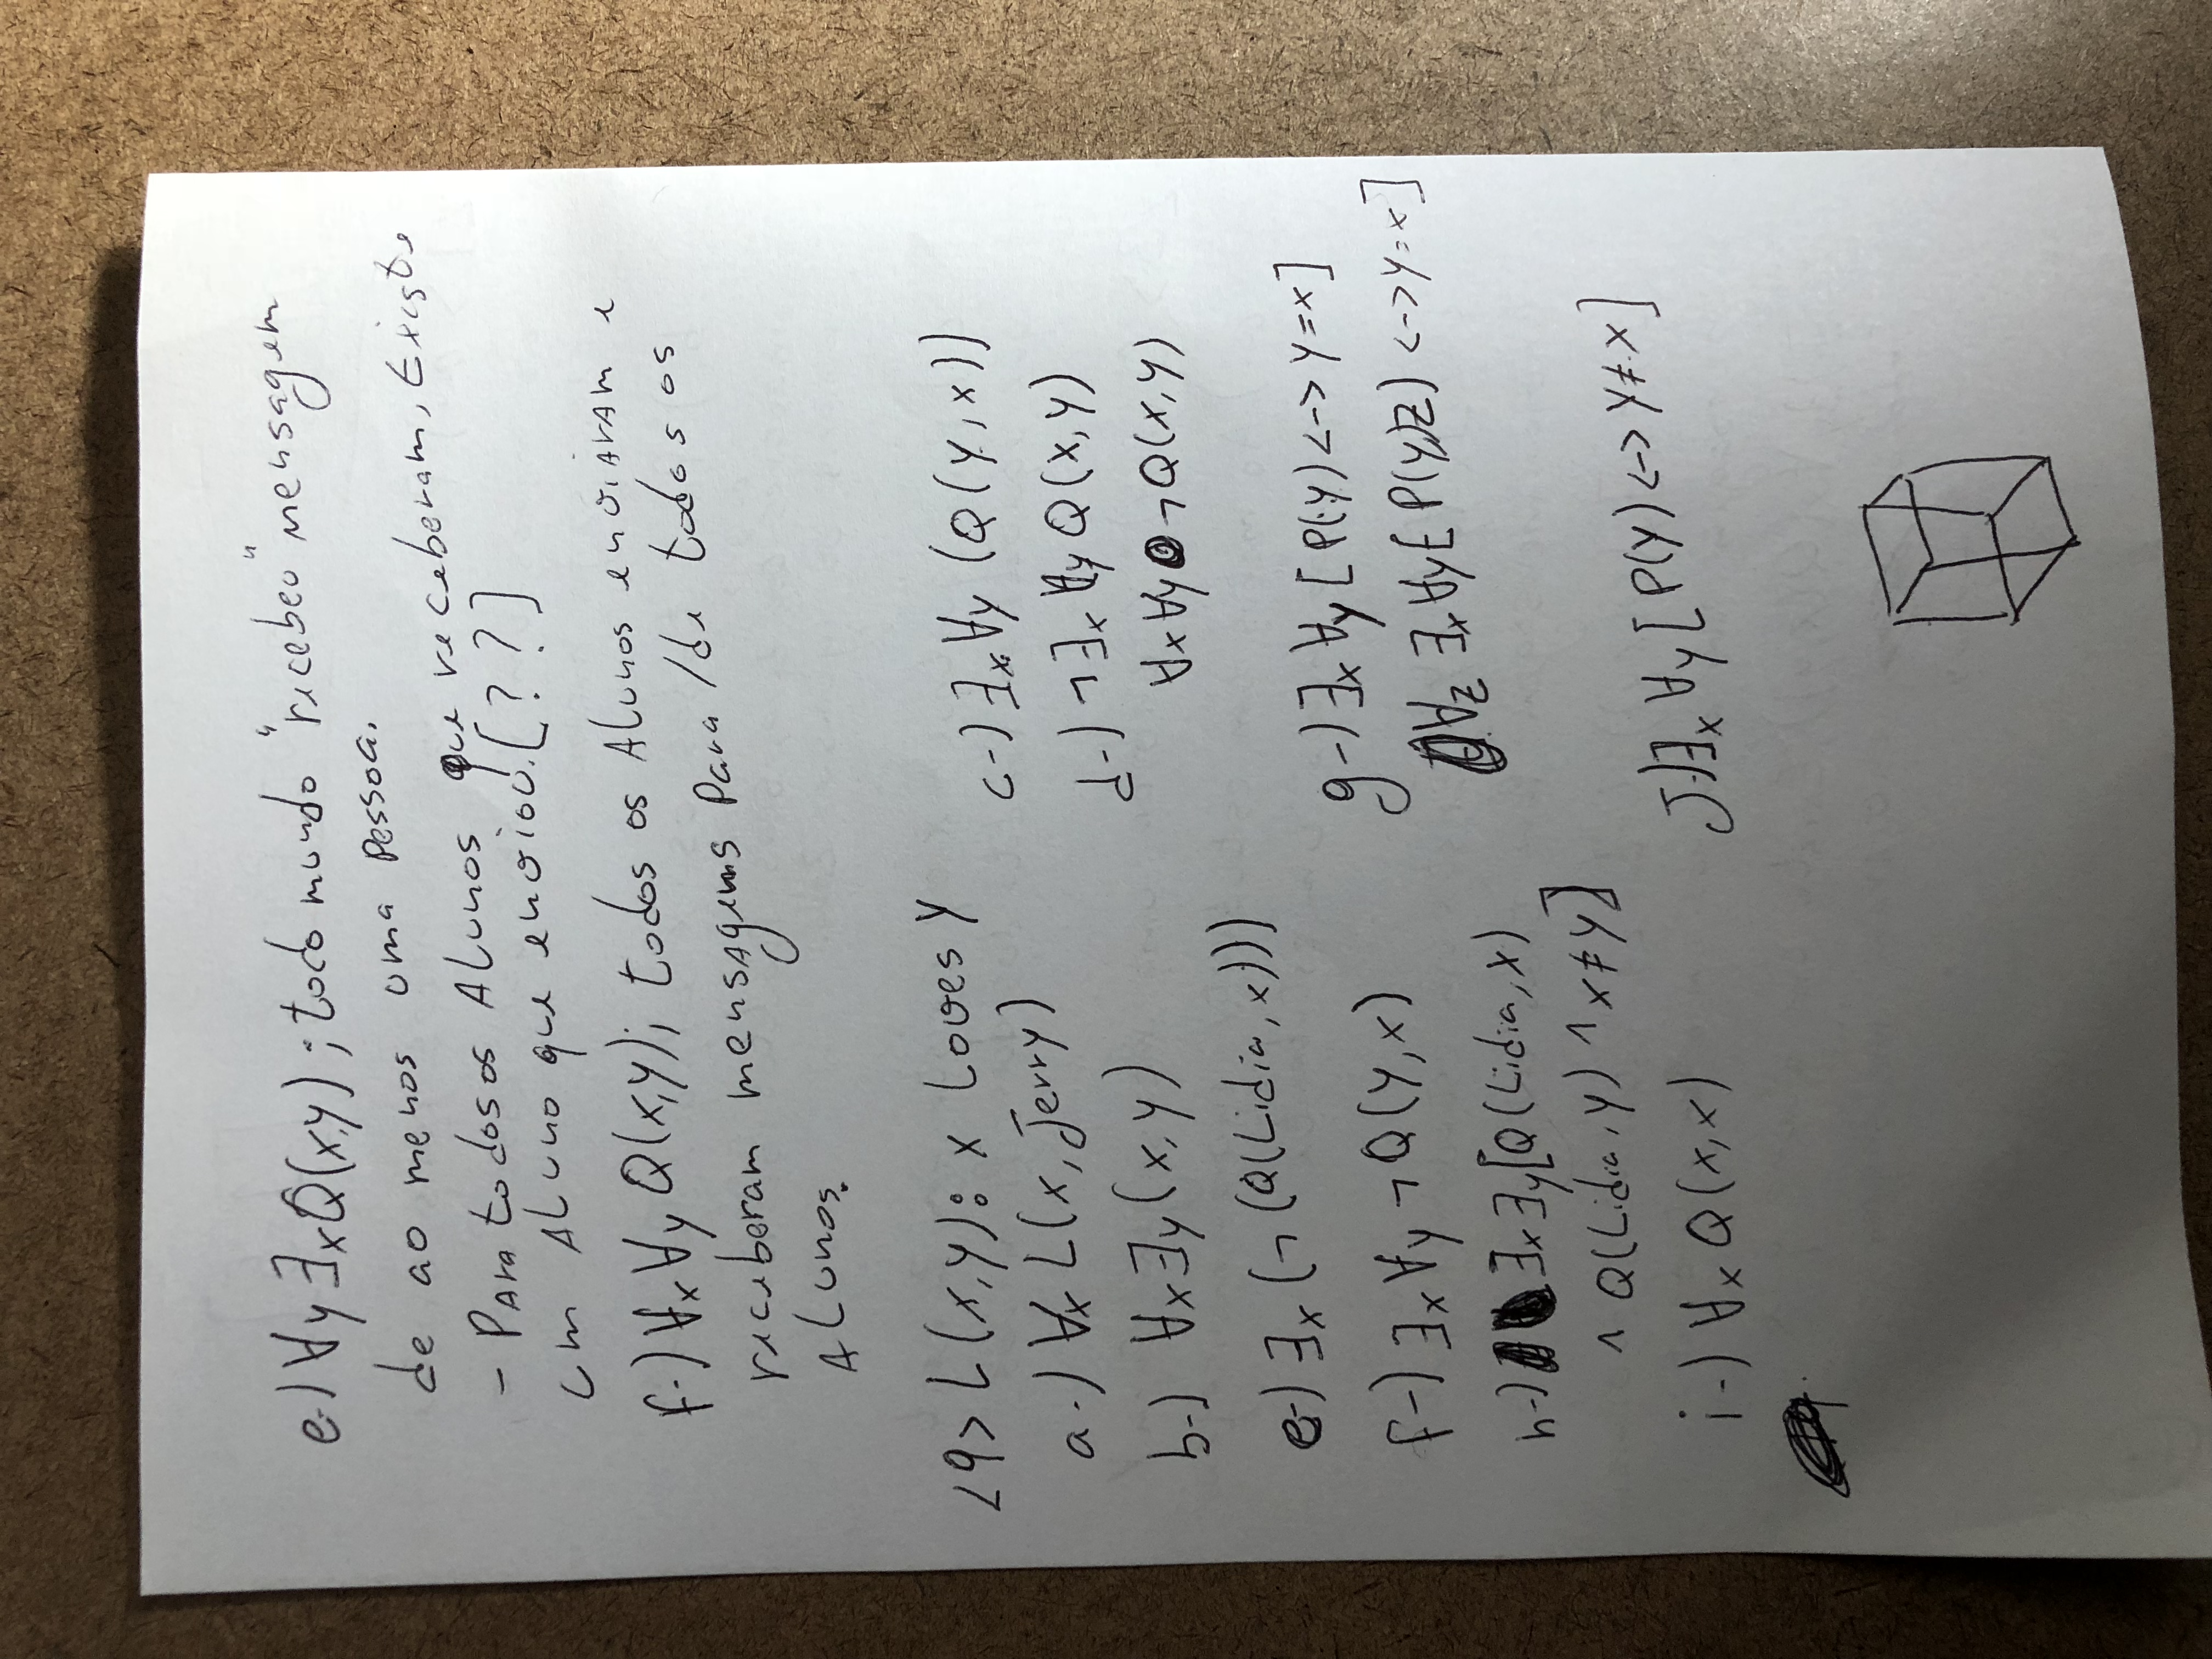 e-) ∀y ∃x Q(x,y) ; todo mundo "recebeu" mensagem
de ao menos uma pessoa.
- Para todos os Alunos que receberam, Existe
um Aluno que enviou. [??]
f-) ∀x ∀y Q(x,y); todos os Alunos enviaram e
receberam mensagens para/de todos os
Alunos.
<9> L(x,y): x Loves y
a-) ∀x L(x, Jerry)
b-) ∀x ∃y (x,y)
c-) ∃x ∀y (Q(y,x))
d-) ¬∃x ∀y Q(x,y)
∀x ∀y ¬Q(x,y)
e-) ∃x (¬(Q(Lidia, x)))
f-) ∃x ∀y ¬Q(y,x)
g-) ∃x ∀y [P(y) <-> y=x]
∀z ∃x ∀y [P(y,z) <-> y=x]
h-) ∃x ∃y [Q(Lidia, x)
^ Q(Lidia, y) ^ x≠y]
i-) ∀x Q(x,x)
J-) ∃x ∀y [P(y) <-> y≠x]